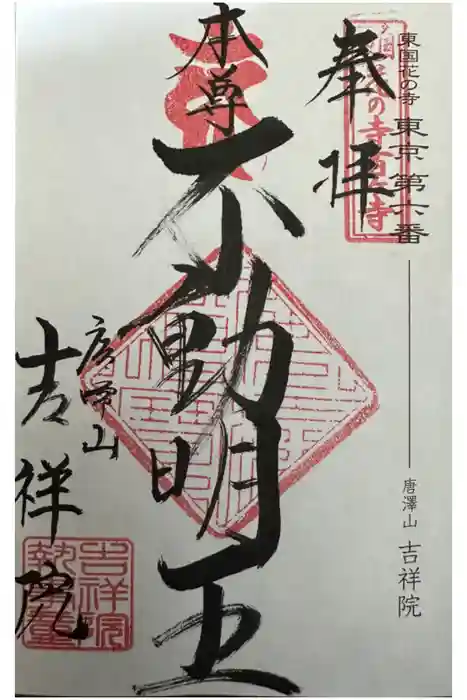 東国花の寺 東京 第六番
唐澤山 吉祥院
奉拝
本尊 不動明王
唐澤山
吉祥院
吉祥院